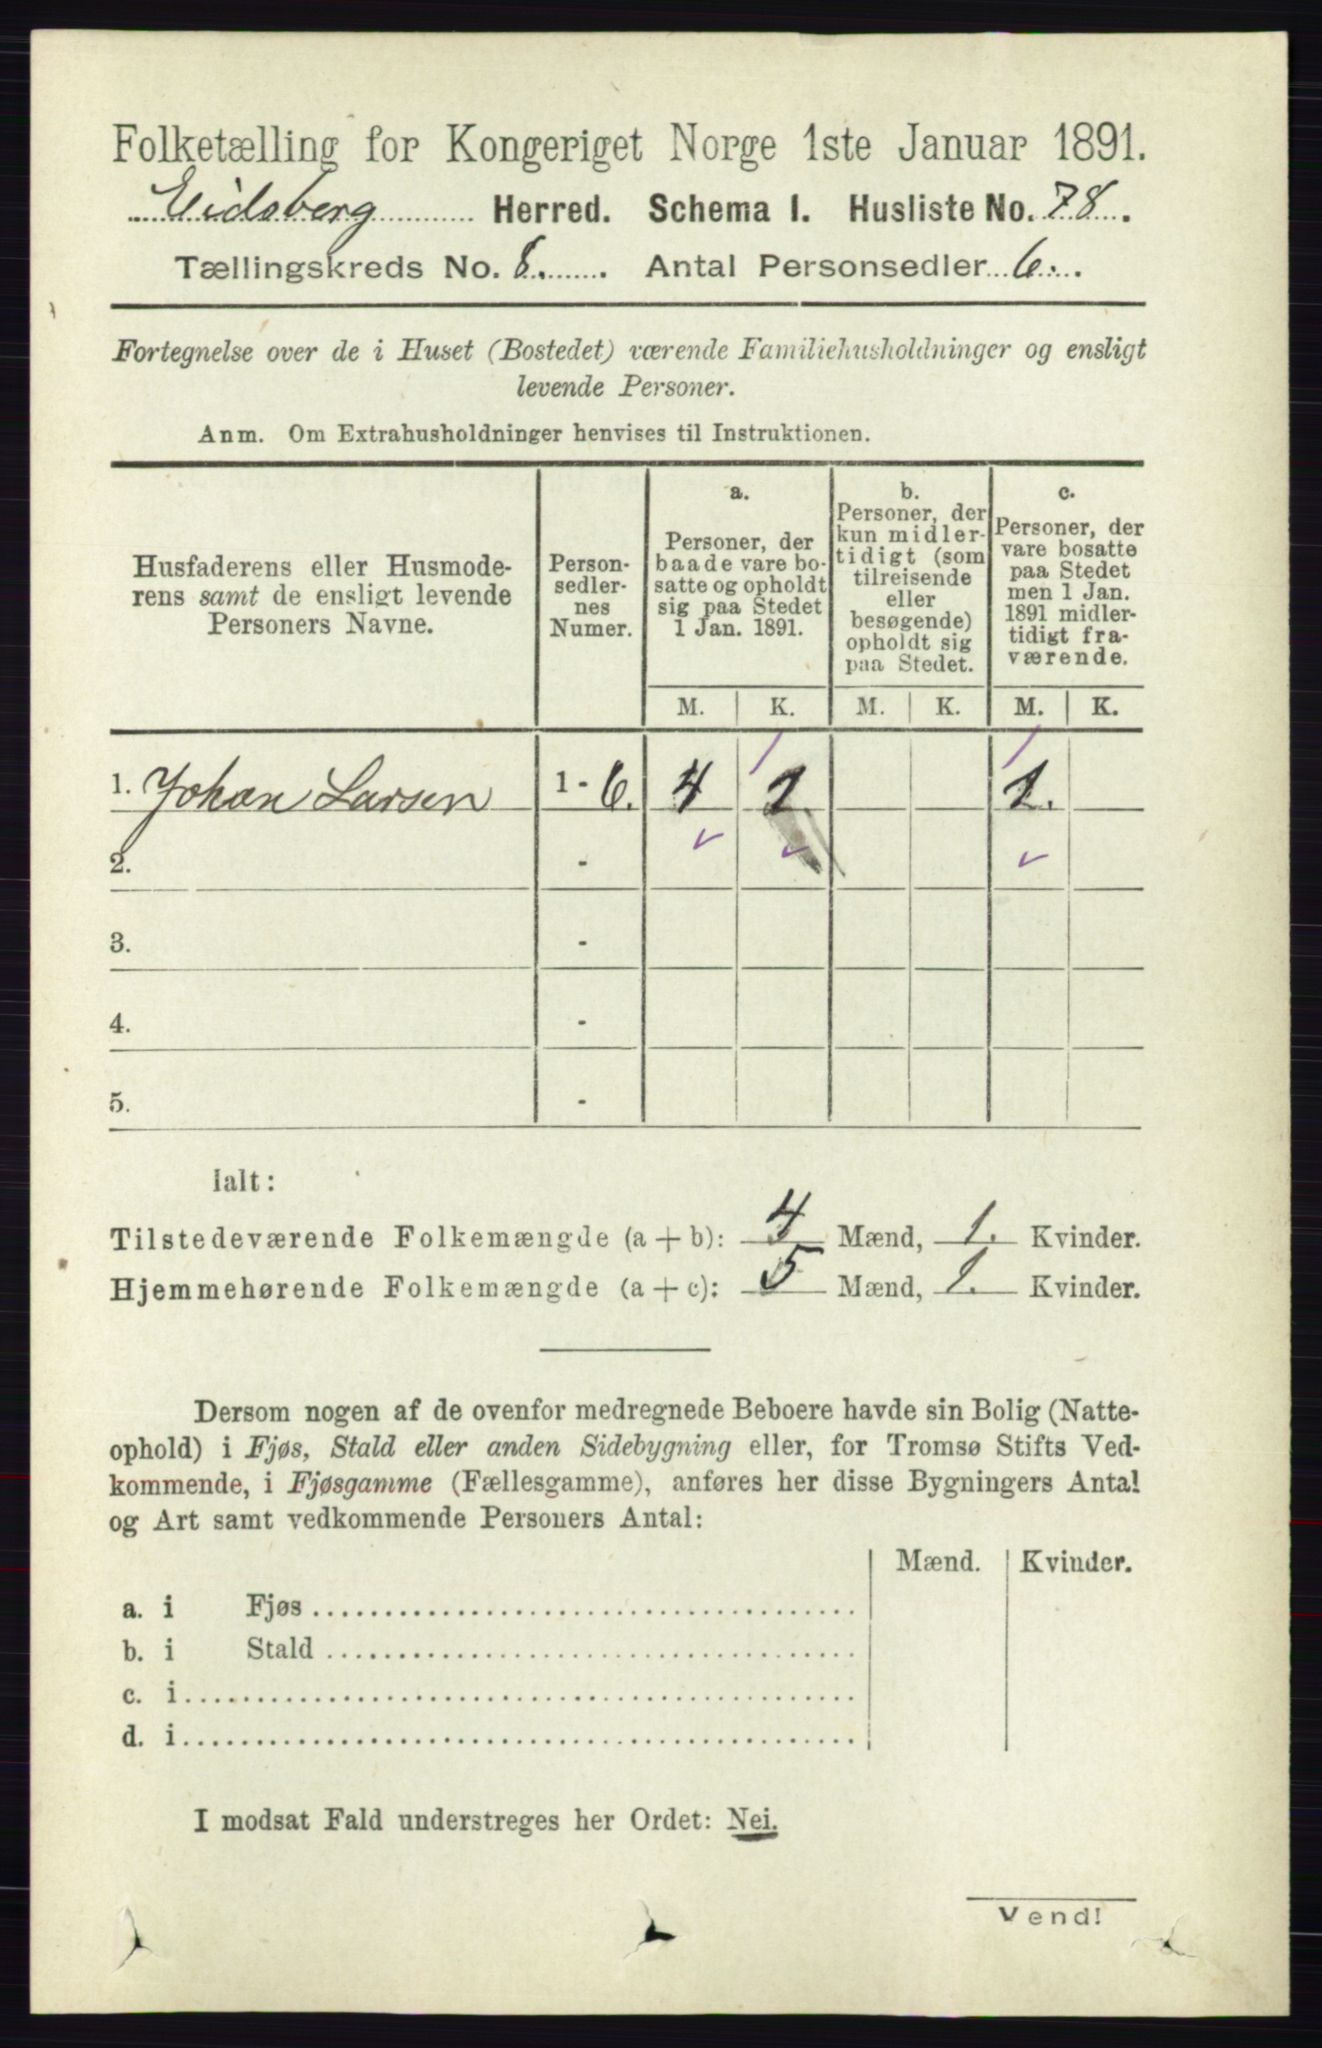 Folketælling for Kongeriget Norge 1ste Januar 1891.
Eidsberg Herred. Schema I. Husliste No. 78.
Tællingskreds No. 8. Antal Personsedler 6.
Fortegnelse over de i Huset (Bostedet) værende Familiehusholdninger og ensligt
levende Personer.
Anm. Om Extrahusholdninger henvises til Instruktionen.
Husfaderens eller Husmode-
rens samt de ensligt levende
Personers Navne.
Person-
sedler-
nes
Numer.
a.
Personer, der
baade vare bo-
satte og opholdt
sig paa Stedet
1 Jan. 1891.
b.
Personer, der
kun midler-
tidigt (som
tilreisende
eller
besøgende)
opholdt sig
paa Stedet.
c.
Personer, der
vare bosatte
paa Stedet
men 1 Jan.
1891 midler-
tidigt fra-
værende.
M. K. M. K. M. K.
1. Johan Larsen 1 - 6. 4 1. 1.
2. -
3. -
4. -
5. -
Ialt:
Tilstedeværende Folkemængde (a + b): 4 Mænd, 1. Kvinder.
Hjemmehørende Folkemængde (a + c): 5 Mænd, 1. Kvinder.
Dersom nogen af de ovenfor medregnede Beboere havde sin Bolig (Natte-
ophold) i Fjøs, Stald eller anden Sidebygning eller, for Tromsø Stifts Ved-
kommende, i Fjøsgamme (Fællesgamme), anføres her disse Bygningers Antal
og Art samt vedkommende Personers Antal:
Mænd. Kvinder.
a. i Fjøs
b. i Stald
c. i
d. i
I modsat Fald understreges her Ordet: Nei.
Vend!